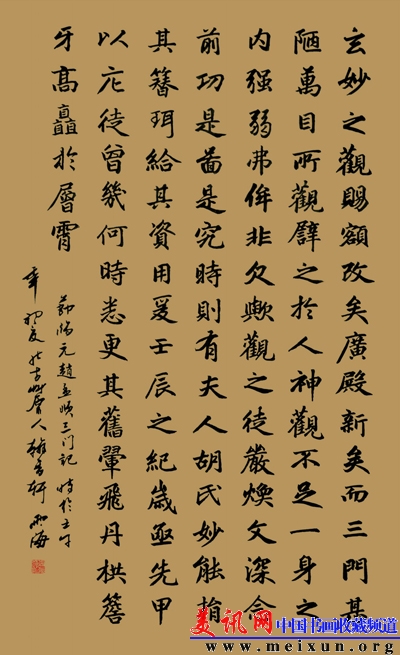 玄妙之觀賜額改矣廣殿新矣而三門甚
陋萬目所觀譬之於人神觀不足一身之
内强弱弗侔非欠歟觀之徒嚴煥文深念
前功是啚是究時則有夫人胡氏妙能捐
其簪珥給其資用爰壬辰之紀歲亟先甲
以庀徒曾幾何時悉更其舊翬飛丹栱簷
牙高矗於層霄
節臨元趙孟頫三门記 時於壬午
年初夏
美讯网 中国书画收藏频道
www.meixun.org